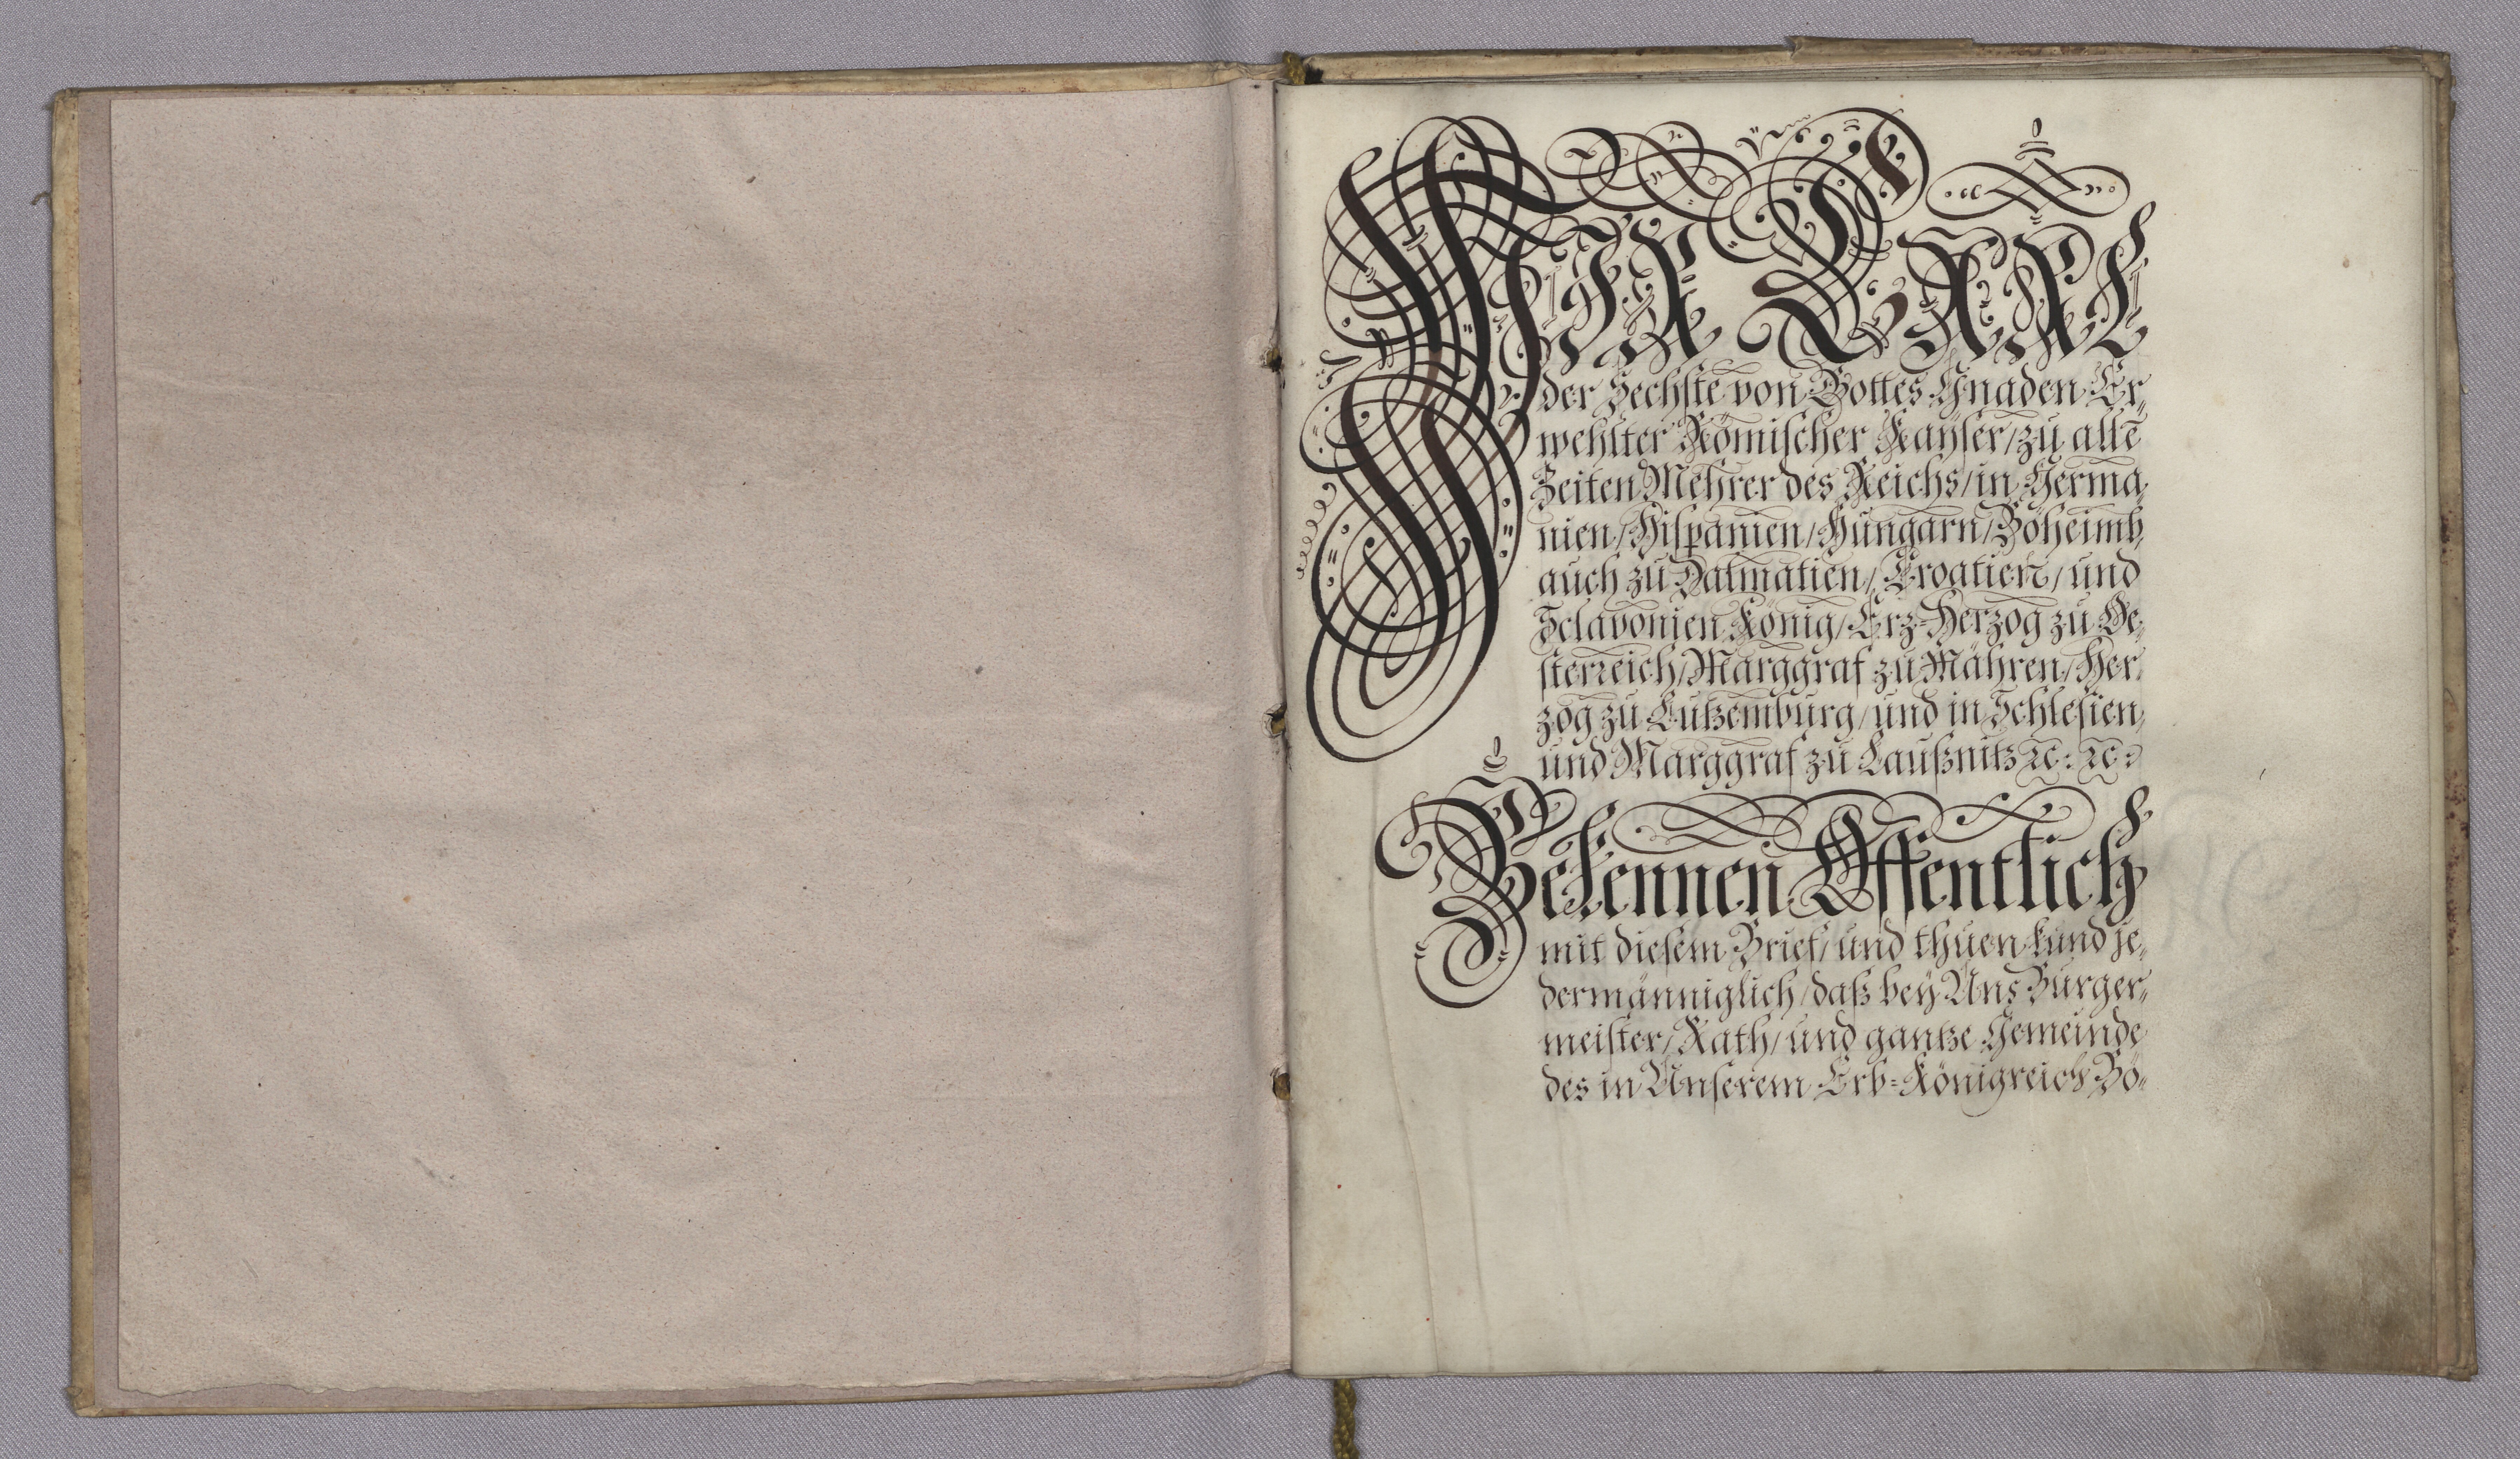 WJR CARL
der Sechste von Gottes Gnaden Er„
wehlter Römischer Kaÿser/ zu allē
Zeiten Mehrer des Reichs/ in Germa„
nien/ Hispanien/ Hungarn/ Böheimb,
auch zu Dalmatien/ Croatien/ und
Sclavonien König/ Erz-Herzog zu Oe„
sterreich/ Marggraf zu Mähren/ Her„
zog zu Lutzemburg/ und in Schlesien,
und Marggraf zu Laußnitz ꝛc: ꝛc:
Bekennen Öffentlich
mit diesem Brief/ und thuen kund je„
dermänniglich/ daß beÿ Uns Burger„
meister/ Rath/ und gantze Gemeinde
des in Unserem Erb=Königreich Bö„